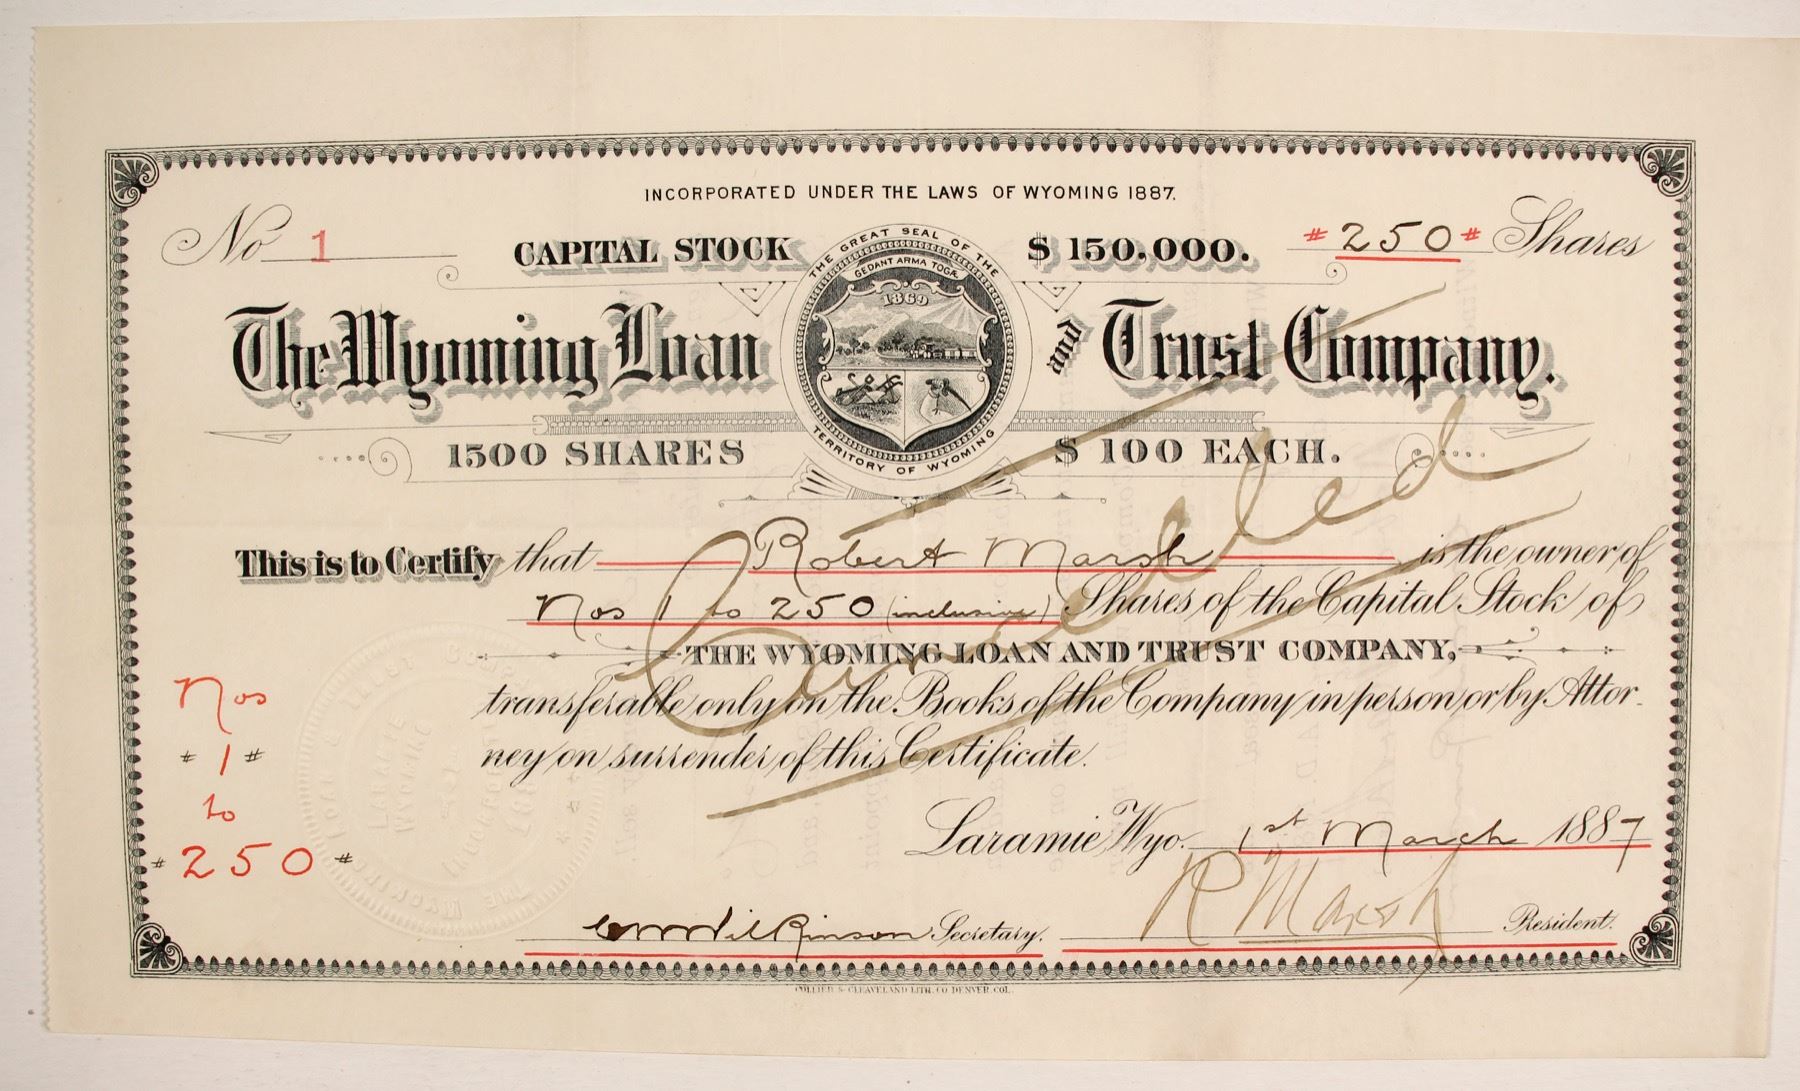 INCORPORATED UNDER THE LAWS OF WYOMING 1887.
No 1
CAPITAL STOCK $ 150,000.
# 250 # Shares
THE GREAT SEAL OF THE
CEDANT ARMA TOGÆ
1869
TERRITORY OF WYOMING
The Wyoming Loan and Trust Company.
1500 SHARES $ 100 EACH.
Cancelled
This is to Certify that Robert Marsh is the owner of
Nos 1 to 250 (inclusive) Shares of the Capital Stock of
THE WYOMING LOAN AND TRUST COMPANY,
transferable only on the Books of the Company in person or by Attor-
ney on surrender of this Certificate.
Nos
# 1 #
to
# 250 #
THE WYOMING LOAN & TRUST COMPANY
LARAMIE
WYOMING
INCORPORATED
1887
Laramie, Wyo. 1st March 1887
C W Wilkinson Secretary.
R Marsh President.
COLLIER & CLEAVELAND LITH. CO DENVER COL.